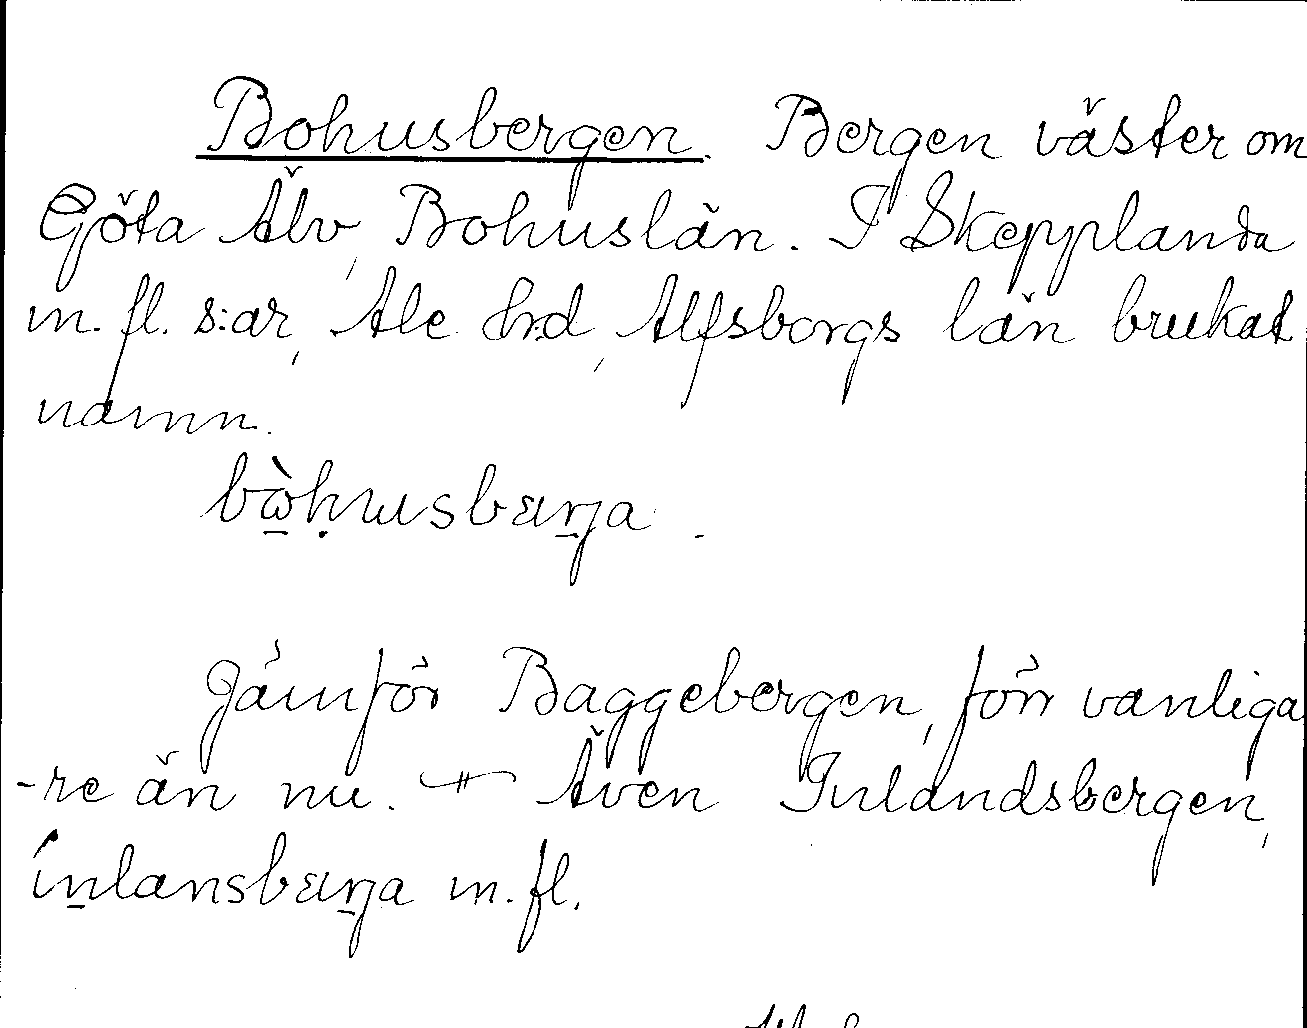 Bohusbergen. Bergen väster om
Göta Älv, Bohuslän. I Skepplanda
m. fl. s:ar, Ale hrd, Älfsborgs län brukat
namn.
Jämför Baggebergen, förr vanliga
-re än nu. Även Inlandsbergen,
m. fl.